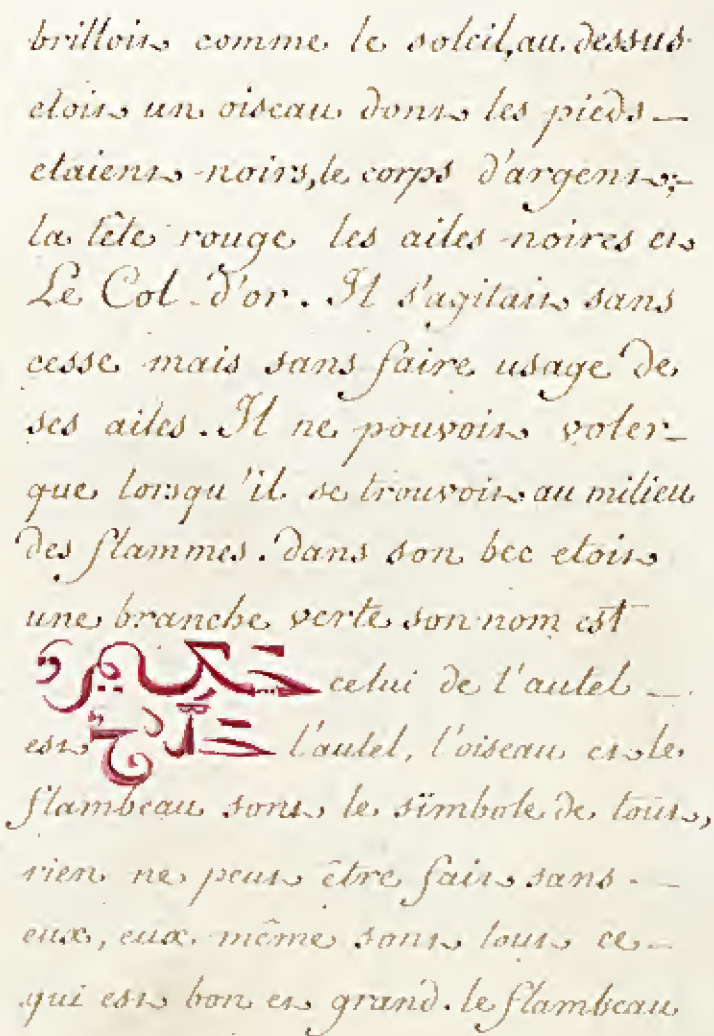 brilloit comme le soleil, au dessus
etoit un oiseau dont les pieds
etaient noirs, le corps d'argent,
la tête rouge les ailes noires et
Le Col d'or. Il s'agitait sans
cesse mais sans faire usage de
ses ailes. Il ne pouvoit voler
que lorsqu'il se trouvoit au milieu
des flammes. dans son bec etoit
une branche verte son nom est
celui de l'autel
est l'autel, l'oiseau et le
flambeau sont le simbole de tout,
rien ne peut être fait sans
eux, eux même sont tout ce
qui est bon et grand. le flambeau